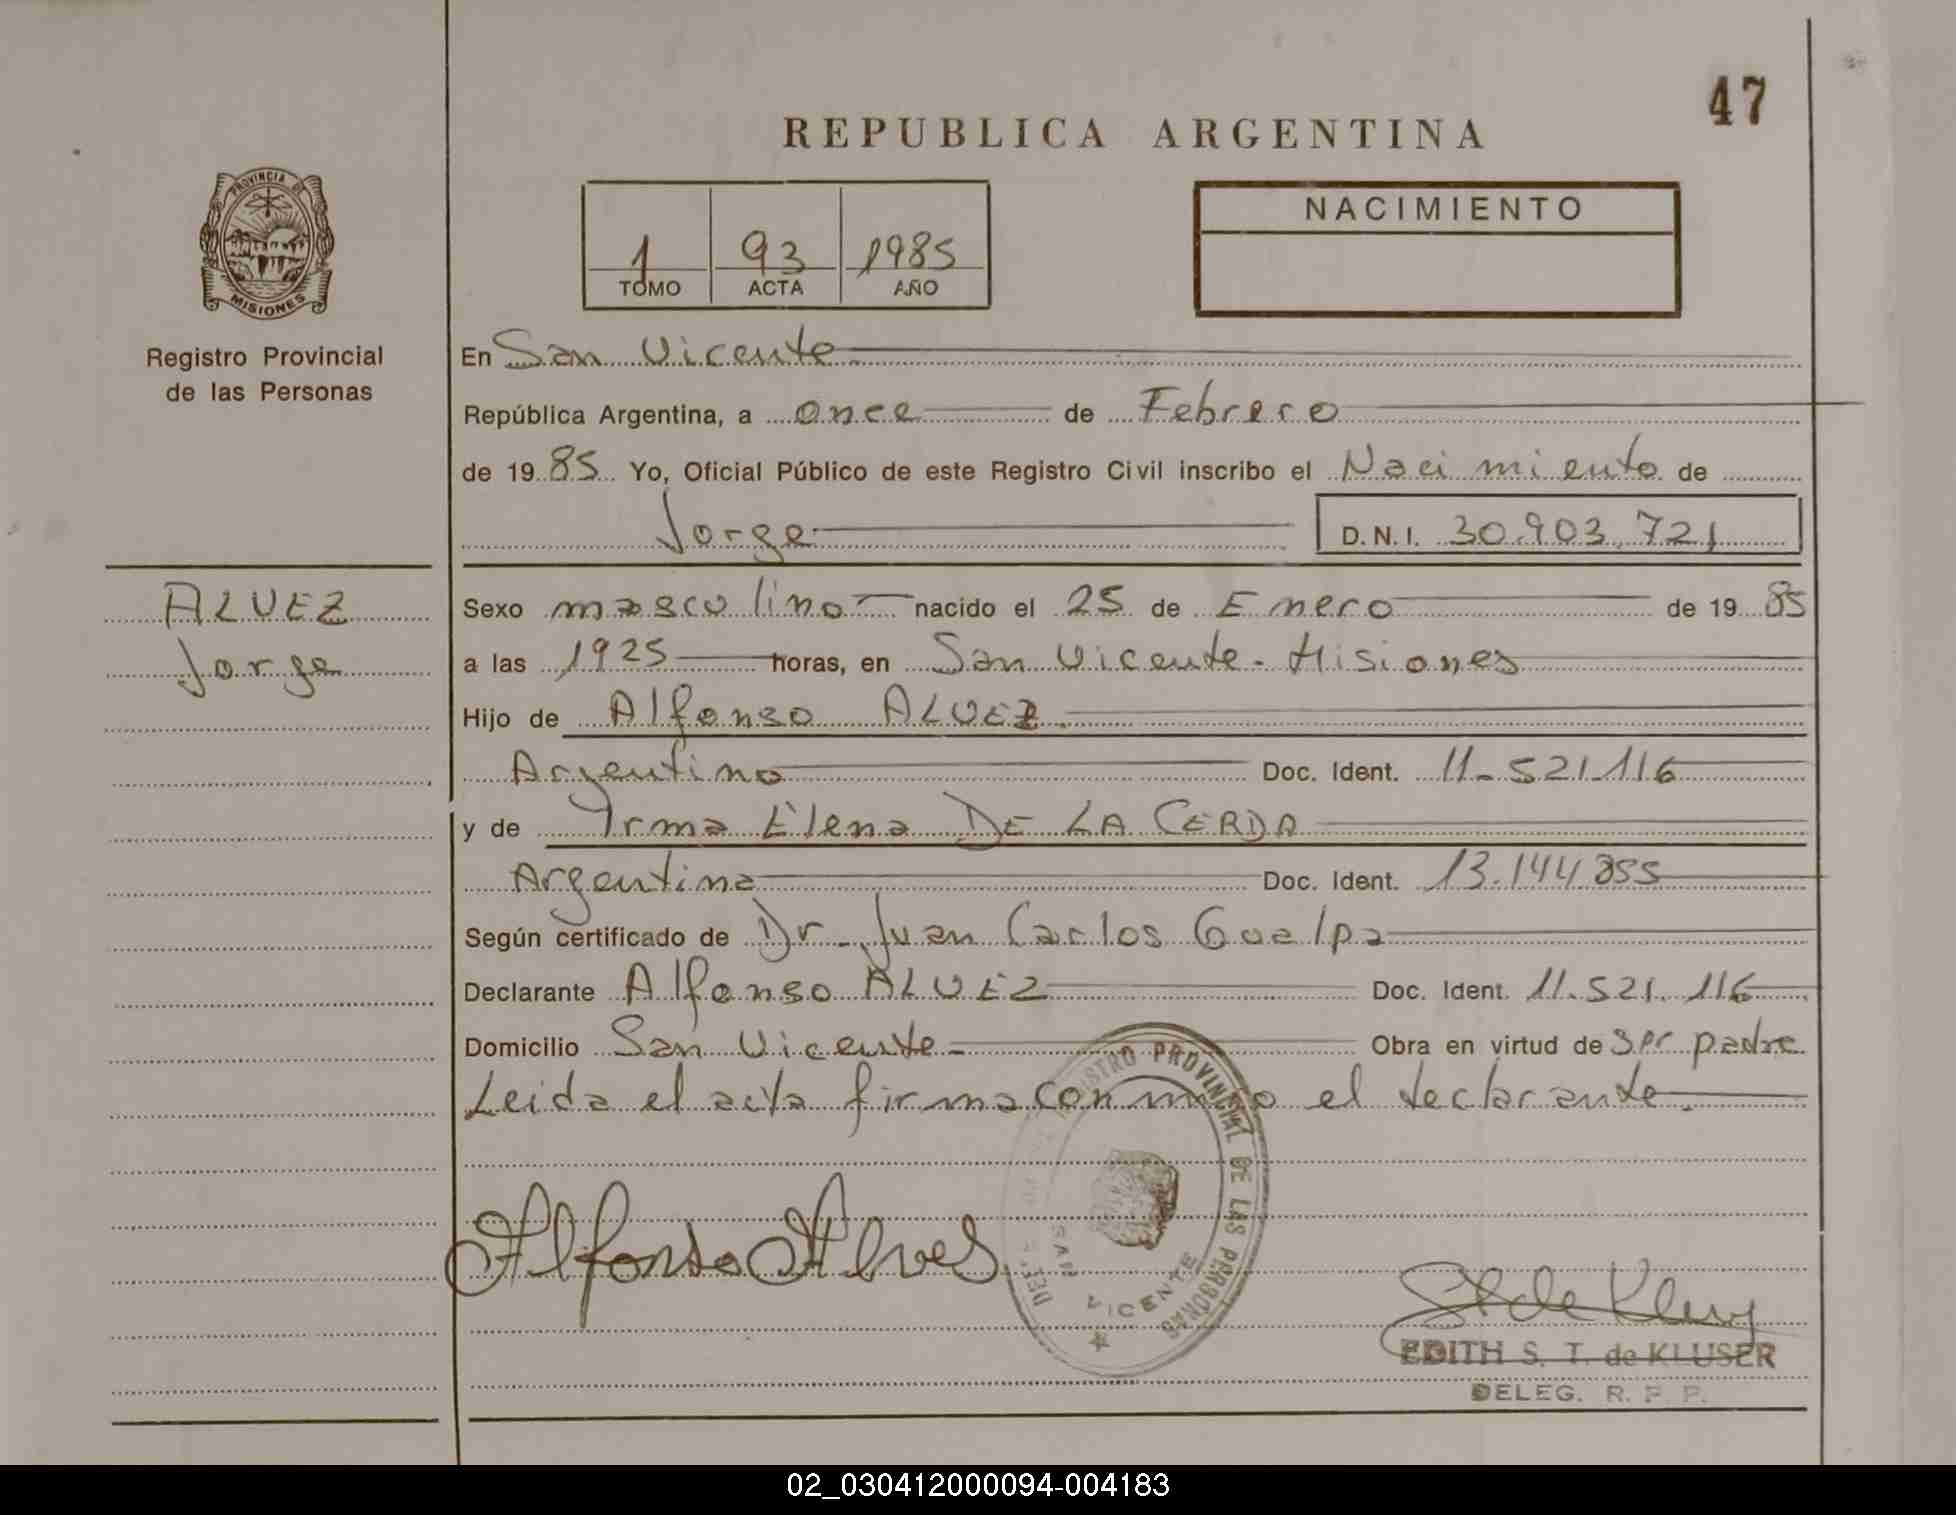 47
REPUBLICA ARGENTINA
PROVINCIA DE
MISIONES
Registro Provincial
de las Personas
1 93 1985
TOMO ACTA AÑO
NACIMIENTO
En San Vicente
República Argentina, a once de Febrero
de 19 85 Yo, Oficial Público de este Registro Civil inscribo el Nacimiento de
Jorge D.N.I. 30.903.721
ALVEZ
Jorge
Sexo masculino nacido el 25 de Enero de 19 85
a las 1925 horas, en San Vicente - Misiones
Hijo de Alfonso ALVEZ
Argentino Doc. Ident. 11-521.116
y de Yrma Elena DE LA CERDA
Argentina Doc. Ident. 13.144.355
Según certificado de Dr. Juan Carlos Gualpa
Declarante Alfonso ALVEZ Doc. Ident. 11.521.116
Domicilio San Vicente Obra en virtud de ser padre
Leida el acta firma conmigo el declarante.
REGISTRO PROVINCIAL DE LAS PERSONAS
SAN VICENTE
Alfonso Alves
EDITH S. T. de KLUSER
DELEG. R. P. P.
02_030412000094-004183